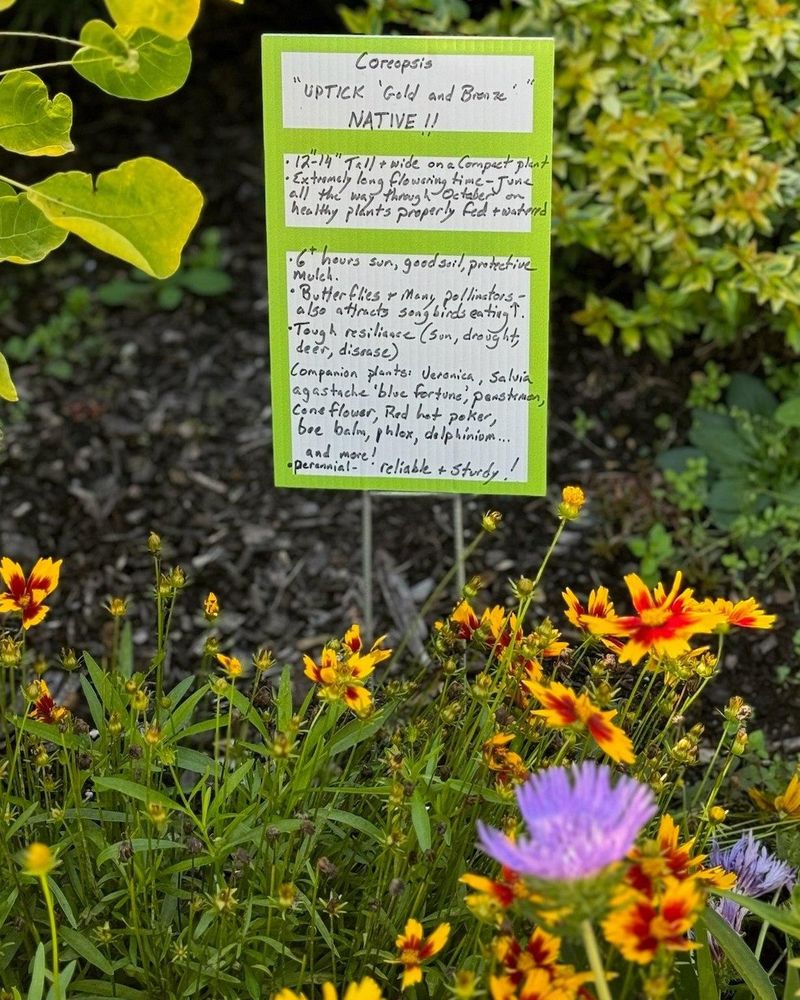 Coreopsis
"UPTICK 'Gold and Bronze' "
NATIVE !!
• 12"-14" Tall + wide on a Compact plant
• Extremely long flowering time - June
all the way through October on
healthy plants properly fed + watered
• 6+ hours sun, good soil, protective
mulch.
• Butterflies + Many pollinators -
also attracts songbirds eating ↑.
• Tough resiliance (sun, drought,
deer, disease)
Companion plants: Veronica, Salvia
agastache 'blue fortune', penstemon,
Coneflower, Red hot poker,
bee balm, phlox, delphinium...
and more!
• perennial - reliable + sturdy!